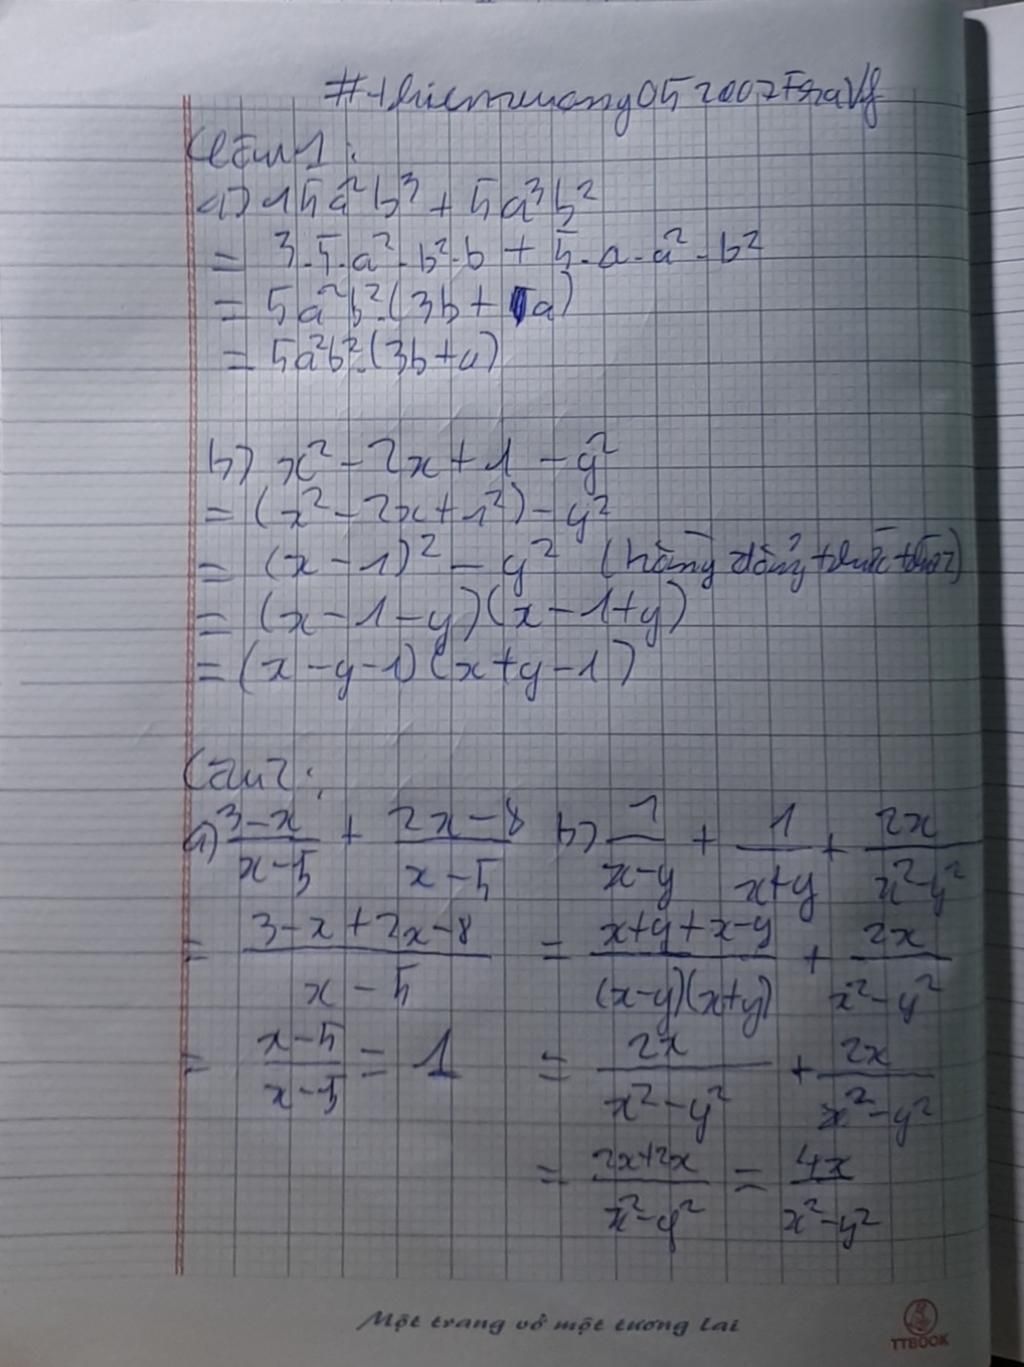 Câu 1:
a) 15a²b³ + 5a³b²
= 3.5.a².b².b + 5.a.a².b²
= 5a²b².(3b + a)
= 5a²b².(3b+a)
b) x² - 2x + 1 - y²
= (x² - 2x + 1²) - y²
= (x - 1)² - y² (hằng đẳng thức
= (x - 1 - y)(x - 1 + y)
= (x - y - 1)(x + y - 1)
Câu 2:
a) (3-x)/(x-5) + (2x-8)/(x-5)
= (3-x+2x-8)/(x-5)
= (x-5)/(x-5) = 1
b) 1/(x-y) + 1/(x+y) + 2x/(x²-y²)
= (x+y+x-y)/((x-y)(x+y)) + 2x/(x²-y²)
= 2x/(x²-y²) + 2x/(x²-y²)
= (2x+2x)/(x²-y²) = 4x/(x²-y²)
Một trang vở một tương lai
TTBOOK